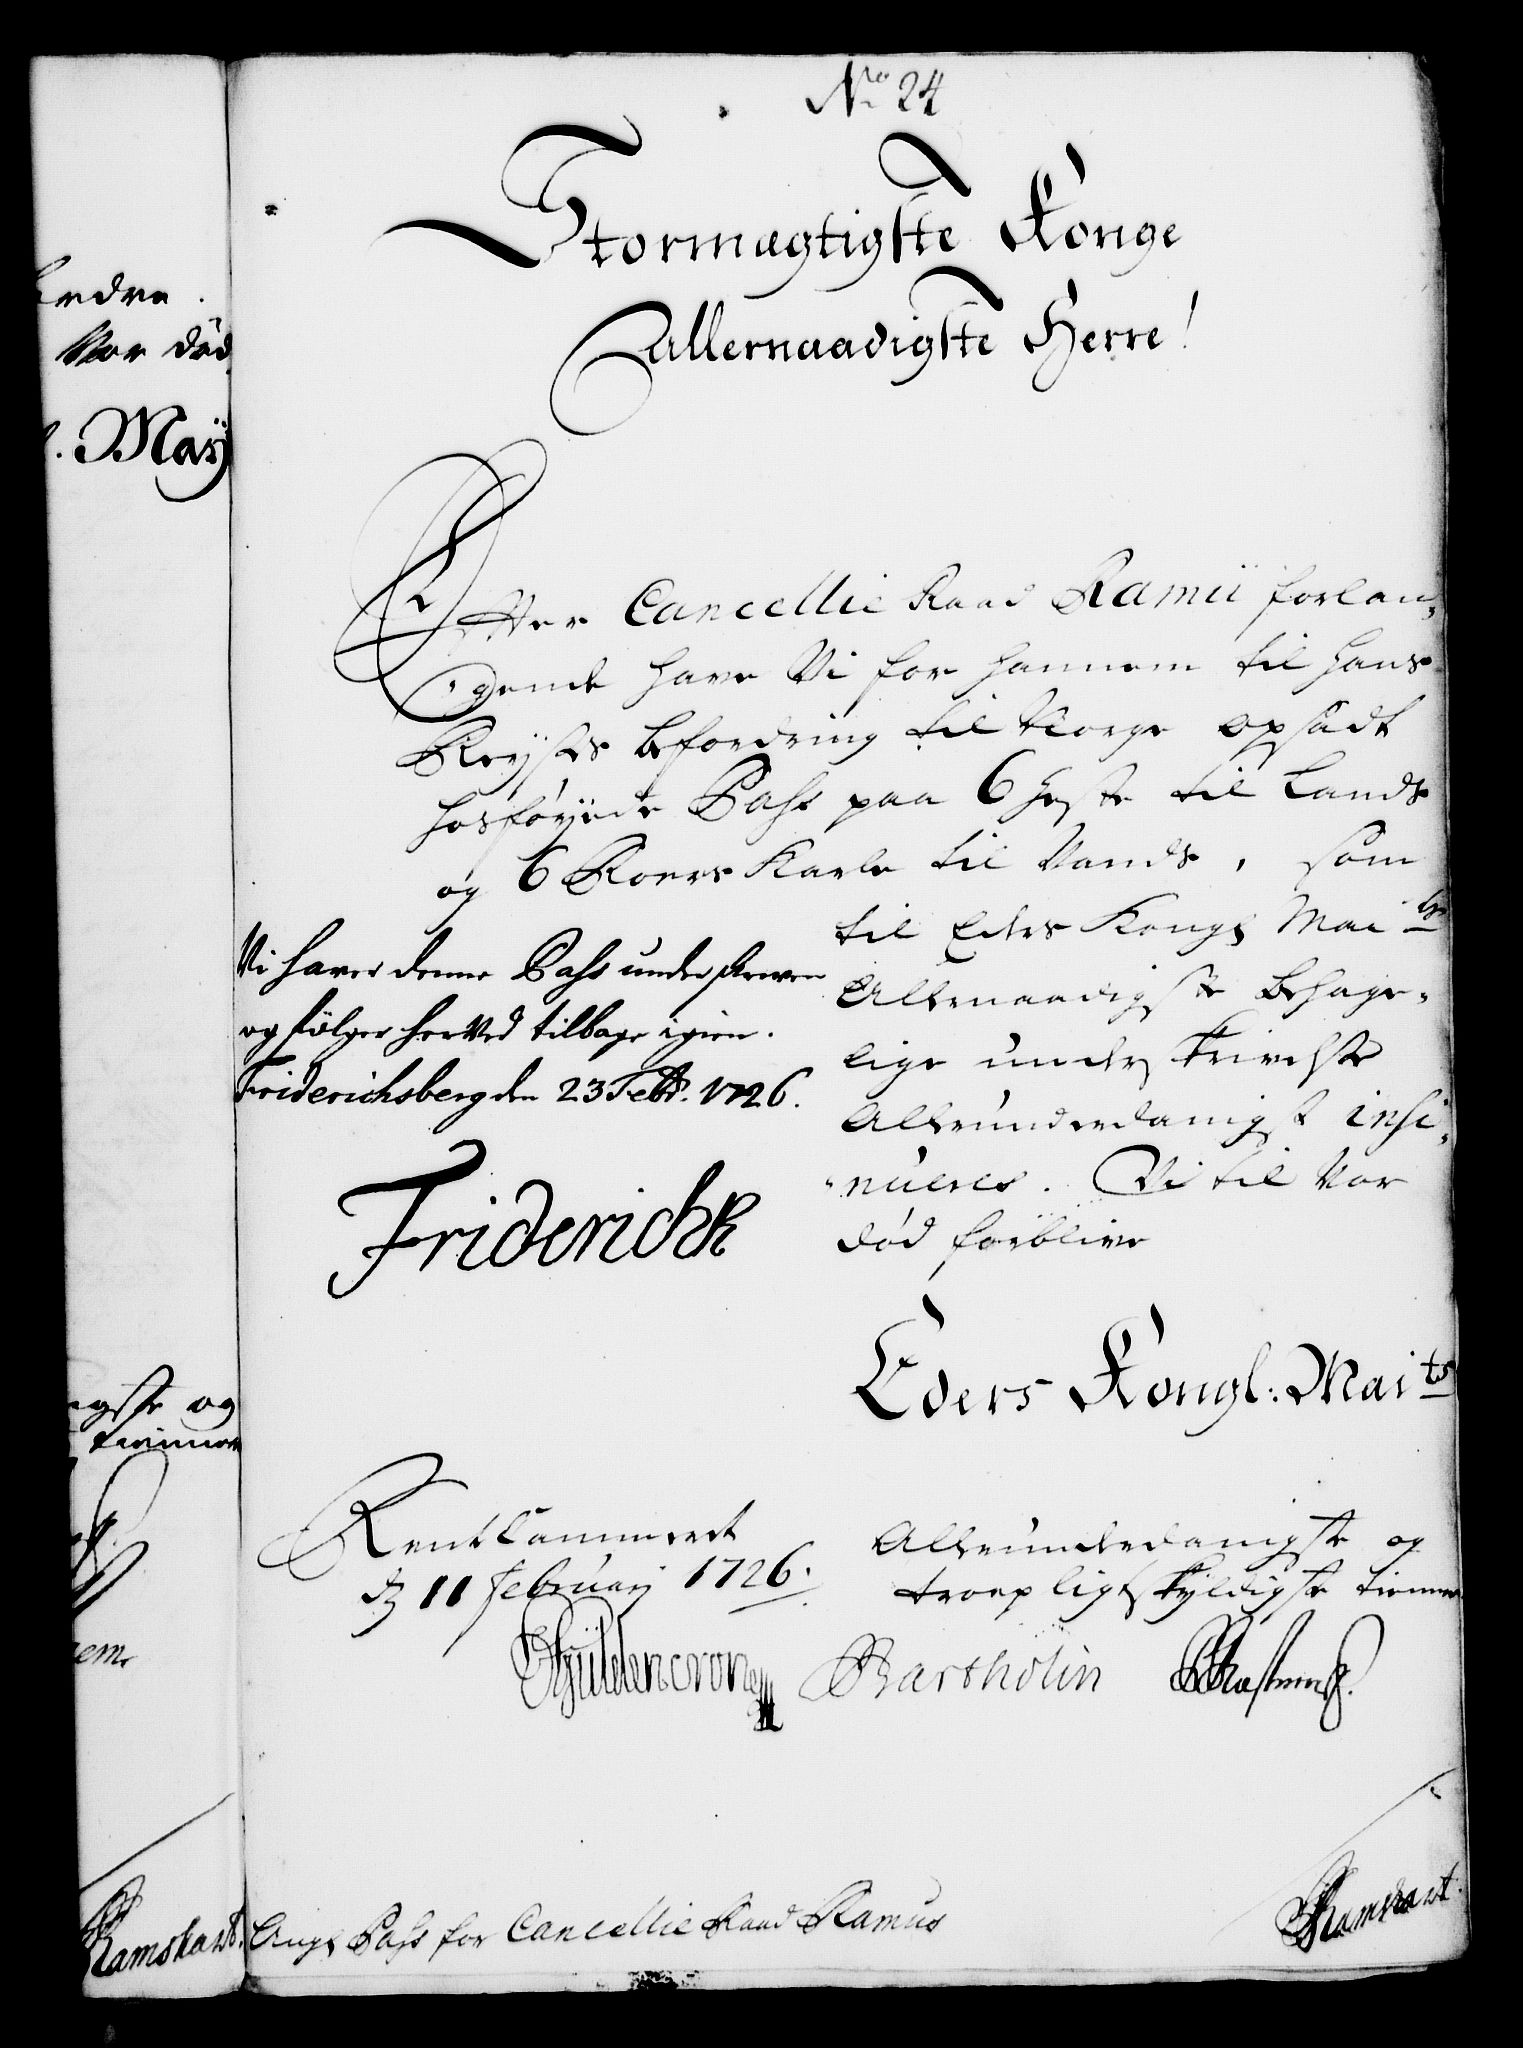 No 24
Stormægtigste Konge
Allernaadigste Herre!
Efter Cancellie Raad Ramii forlan,
gende have Vi for hannem til hans
Reyses befordring til Norge opsadt
hosføyede Pass paa 6 heste til Lands
og 6 Roers Karle til Vands, som
til Eders Kongl Maits
Allernaadigste behage,
lige underskrivelse
Allerunderdanigst insi,
nueres. Vi til Vor
død forblive
Vi haver denne Pass underskreven
og følger herved tilbage igien.
Friderichsberg den 23 Febr. 1726.
Friderich R
Eders Kongl: Maits
RentCammeret
d 11 February 1726.
Allerunderdanigste og
troepligtskyldigste tienere
Güldencrone
Bartholin
Angl Pass for Cancellie Raad Ramus
Ramshart.
Andre.
Vor død
Maÿ
ngste og
tienere
em
Ramshart.